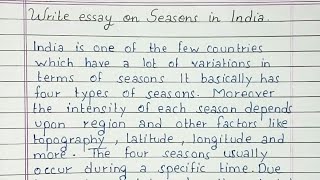 Write essay on Seasons in India.
India is one of the few countries
which have a lot of variations in
terms of seasons. It basically has
four types of seasons. Moreover
the intensity of each season depends
upon region and other factors like
topography, latitude, longitude and
more. The four seasons usually
occur during a specific time. Due